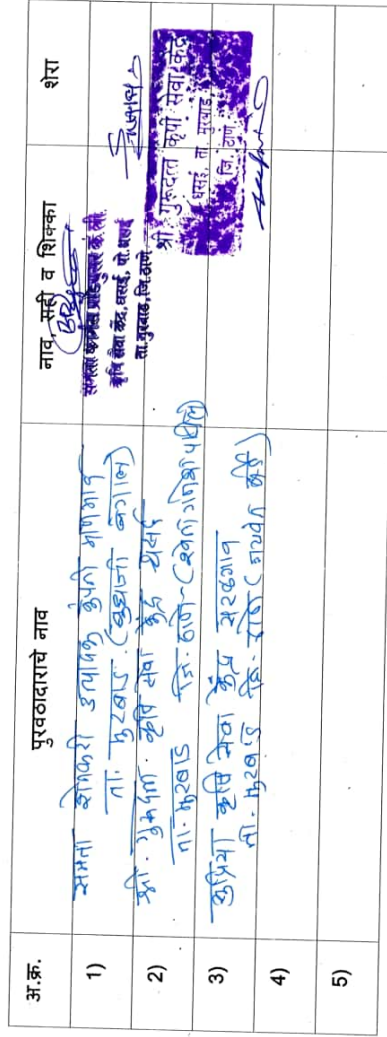 अ.क्र. पुरवठादाराचे नाव नाव, सही व शिक्का शेरा
1) समता शेतकरी उत्पादक कंपनी
ता. मुरबाड. (बुधाजी बांगर)
कृषि सेवा केंद्र, धसई, पो. धसई
ता. मुरबाड, जि. ठाणे
2) श्री. गुरुदत्त कृषि सेवा केंद्र धसई
ता. मुरबाड जि. ठाणे
श्री गुरुदत्त कृषी सेवा केंद्र
धसई, ता. मुरबाड
जि. ठाणे
3) सुप्रिया कृषि सेवा केंद्र सरळगाव
ता. मुरबाड जि. ठाणे
4)
5)